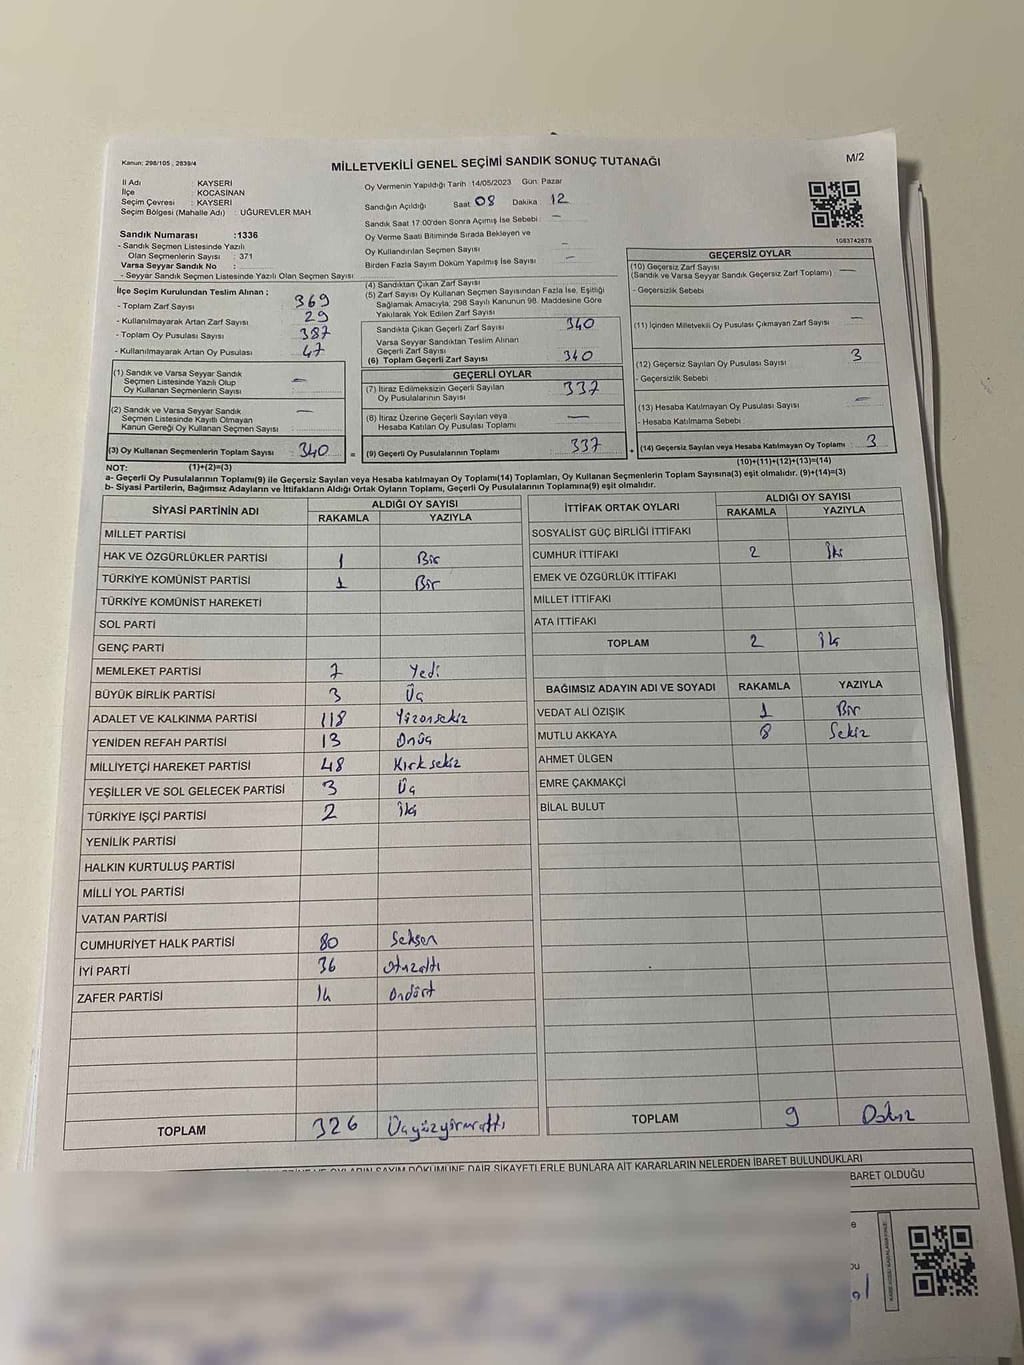 Kanun; 298/105 , 2839/4
MİLLETVEKİLİ GENEL SEÇİMİ SANDIK SONUÇ TUTANAĞI
M/2
İl Adı : KAYSERİ
İlçe : KOCASİNAN
Seçim Çevresi : KAYSERİ
Seçim Bölgesi (Mahalle Adı) : UĞUREVLER MAH
Oy Vermenin Yapıldığı Tarih :14/05/2023 Gün: Pazar
Sandığın Açıldığı Saat 08 Dakika : 12
Sandık Saat 17:00'den Sonra Açımış İse Sebebi : —
Oy Verme Saati Bitiminde Sırada Bekleyen ve
Oy Kullandırılan Seçmen Sayısı —
Birden Fazla Sayım Döküm Yapılmış İse Sayısı —
1083742878
Sandık Numarası :1336
- Sandık Seçmen Listesinde Yazılı
Olan Seçmenlerin Sayısı : 371
Varsa Seyyar Sandık No :
- Seyyar Sandık Seçmen Listesinde Yazılı Olan Seçmen Sayısı
İlçe Seçim Kurulundan Teslim Alınan ;
- Toplam Zarf Sayısı 369
- Kullanılmayarak Artan Zarf Sayısı 29
- Toplam Oy Pusulası Sayısı 387
- Kullanılmayarak Artan Oy Pusulası 47
(1) Sandık ve Varsa Seyyar Sandık
Seçmen Listesinde Yazılı Olup
Oy Kullanan Seçmenlerin Sayısı —
(2) Sandık ve Varsa Seyyar Sandık
Seçmen Listesinde Kayıtlı Olmayan
Kanun Gereği Oy Kullanan Seçmen Sayısı : —
(3) Oy Kullanan Seçmenlerin Toplam Sayısı 340 =
(1)+(2)=(3)
(4) Sandıktan Çıkan Zarf Sayısı
(5) Zarf Sayısı Oy Kullanan Seçmen Sayısından Fazla İse, Eşitliği
Sağlamak Amacıyla, 298 Sayılı Kanunun 98. Maddesine Göre
Yakılarak Yok Edilen Zarf Sayısı
Sandıkta Çıkan Geçerli Zarf Sayısı 340
Varsa Seyyar Sandıktan Teslim Alınan
Geçerli Zarf Sayısı
(6) Toplam Geçerli Zarf Sayısı 340
GEÇERLİ OYLAR
(7) İtiraz Edilmeksizin Geçerli Sayılan
Oy Pusulalarının Sayısı 337
(8) İtiraz Üzerine Geçerli Sayılan veya
Hesaba Katılan Oy Pusulası Toplamı —
(9) Geçerli Oy Pusulalarının Toplamı 337 +
GEÇERSİZ OYLAR
(10) Geçersiz Zarf Sayısı
(Sandık ve Varsa Seyyar Sandık Geçersiz Zarf Toplamı) —
- Geçersizlik Sebebi
(11) İçinden Milletvekili Oy Pusulası Çıkmayan Zarf Sayısı —
(12) Geçersiz Sayılan Oy Pusulası Sayısı 3
- Geçersizlik Sebebi
(13) Hesaba Katılmayan Oy Pusulası Sayısı —
- Hesaba Katılmama Sebebi
(14) Geçersiz Sayılan veya Hesaba Katılmayan Oy Toplamı : 3
(10)+(11)+(12)+(13)=(14)
NOT:
a- Geçerli Oy Pusulalarının Toplamı(9) ile Geçersiz Sayılan veya Hesaba katılmayan Oy Toplamı(14) Toplamları, Oy Kullanan Seçmenlerin Toplam Sayısına(3) eşit olmalıdır. (9)+(14)=(3)
b- Siyasi Partilerin, Bağımsız Adayların ve İttifakların Aldığı Ortak Oyların Toplamı, Geçerli Oy Pusulalarının Toplamına(9) eşit olmalıdır.
SİYASİ PARTİNİN ADI ALDIĞI OY SAYISI
RAKAMLA YAZIYLA
MİLLET PARTİSİ
HAK VE ÖZGÜRLÜKLER PARTİSİ 1 Bir
TÜRKİYE KOMÜNİST PARTİSİ 1 Bir
TÜRKİYE KOMÜNİST HAREKETİ
SOL PARTİ
GENÇ PARTİ
MEMLEKET PARTİSİ 7 Yedi
BÜYÜK BİRLİK PARTİSİ 3 Üç
ADALET VE KALKINMA PARTİSİ 118 Yüzonsekiz
YENİDEN REFAH PARTİSİ 13 Onüç
MİLLİYETÇİ HAREKET PARTİSİ 48 Kırksekiz
YEŞİLLER VE SOL GELECEK PARTİSİ 3 Üç
TÜRKİYE İŞÇİ PARTİSİ 2 İki
YENİLİK PARTİSİ
HALKIN KURTULUŞ PARTİSİ
MİLLİ YOL PARTİSİ
VATAN PARTİSİ
CUMHURİYET HALK PARTİSİ 80 Seksen
İYİ PARTİ 36 Otuzaltı
ZAFER PARTİSİ 14 Ondört
TOPLAM 326 Üçyüzyirmialtı
İTTİFAK ORTAK OYLARI ALDIĞI OY SAYISI
RAKAMLA YAZIYLA
SOSYALİST GÜÇ BİRLİĞİ İTTİFAKI
CUMHUR İTTİFAKI 2 İki
EMEK VE ÖZGÜRLÜK İTTİFAKI
MİLLET İTTİFAKI
ATA İTTİFAKI
TOPLAM 2 İki
BAĞIMSIZ ADAYIN ADI VE SOYADI RAKAMLA YAZIYLA
VEDAT ALİ ÖZIŞIK 1 Bir
MUTLU AKKAYA 8 Sekiz
AHMET ÜLGEN
EMRE ÇAKMAKÇİ
BİLAL BULUT
TOPLAM 9 Dokuz
OYLARIN SAYIM DÖKÜMÜNE DAİR ŞİKAYETLERLE BUNLARA AİT KARARLARIN NELERDEN İBARET BULUNDUKLARI
BARET OLDUĞU